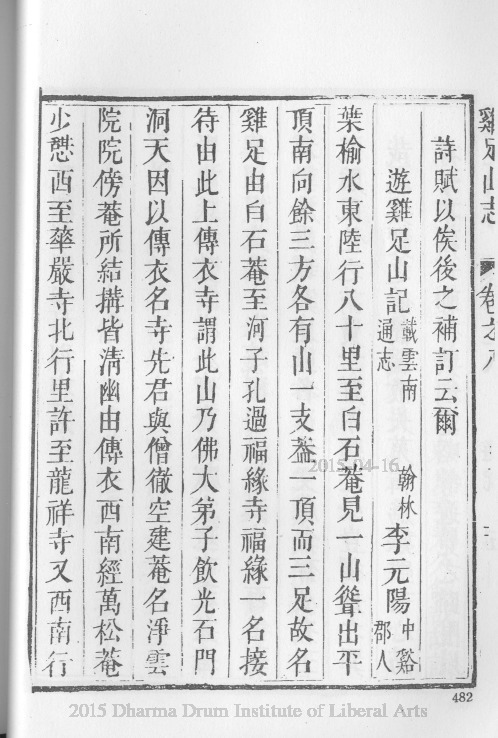 雞足山志 卷之八
詩賦以俟後之補訂云爾
遊雞足山記 載雲南通志 翰林 李元陽 中谿郡人
葉榆水東陸行八十里至白石菴見一山聳出平
頂南向餘三方各有山一支葢一頂而三足故名
雞足由白石菴至河子孔過福緣寺福緣一名接
待由此上傳衣寺謂此山乃佛大弟子飲光石門
洞天因以傳衣名寺先君與僧徹空建菴名淨雲
院院傍菴所結搆皆淸幽由傳衣西南經萬松菴
少憇西至華嚴寺北行里許至龍祥寺又西南行
2015-04-16
482
2015 Dharma Drum Institute of Liberal Arts